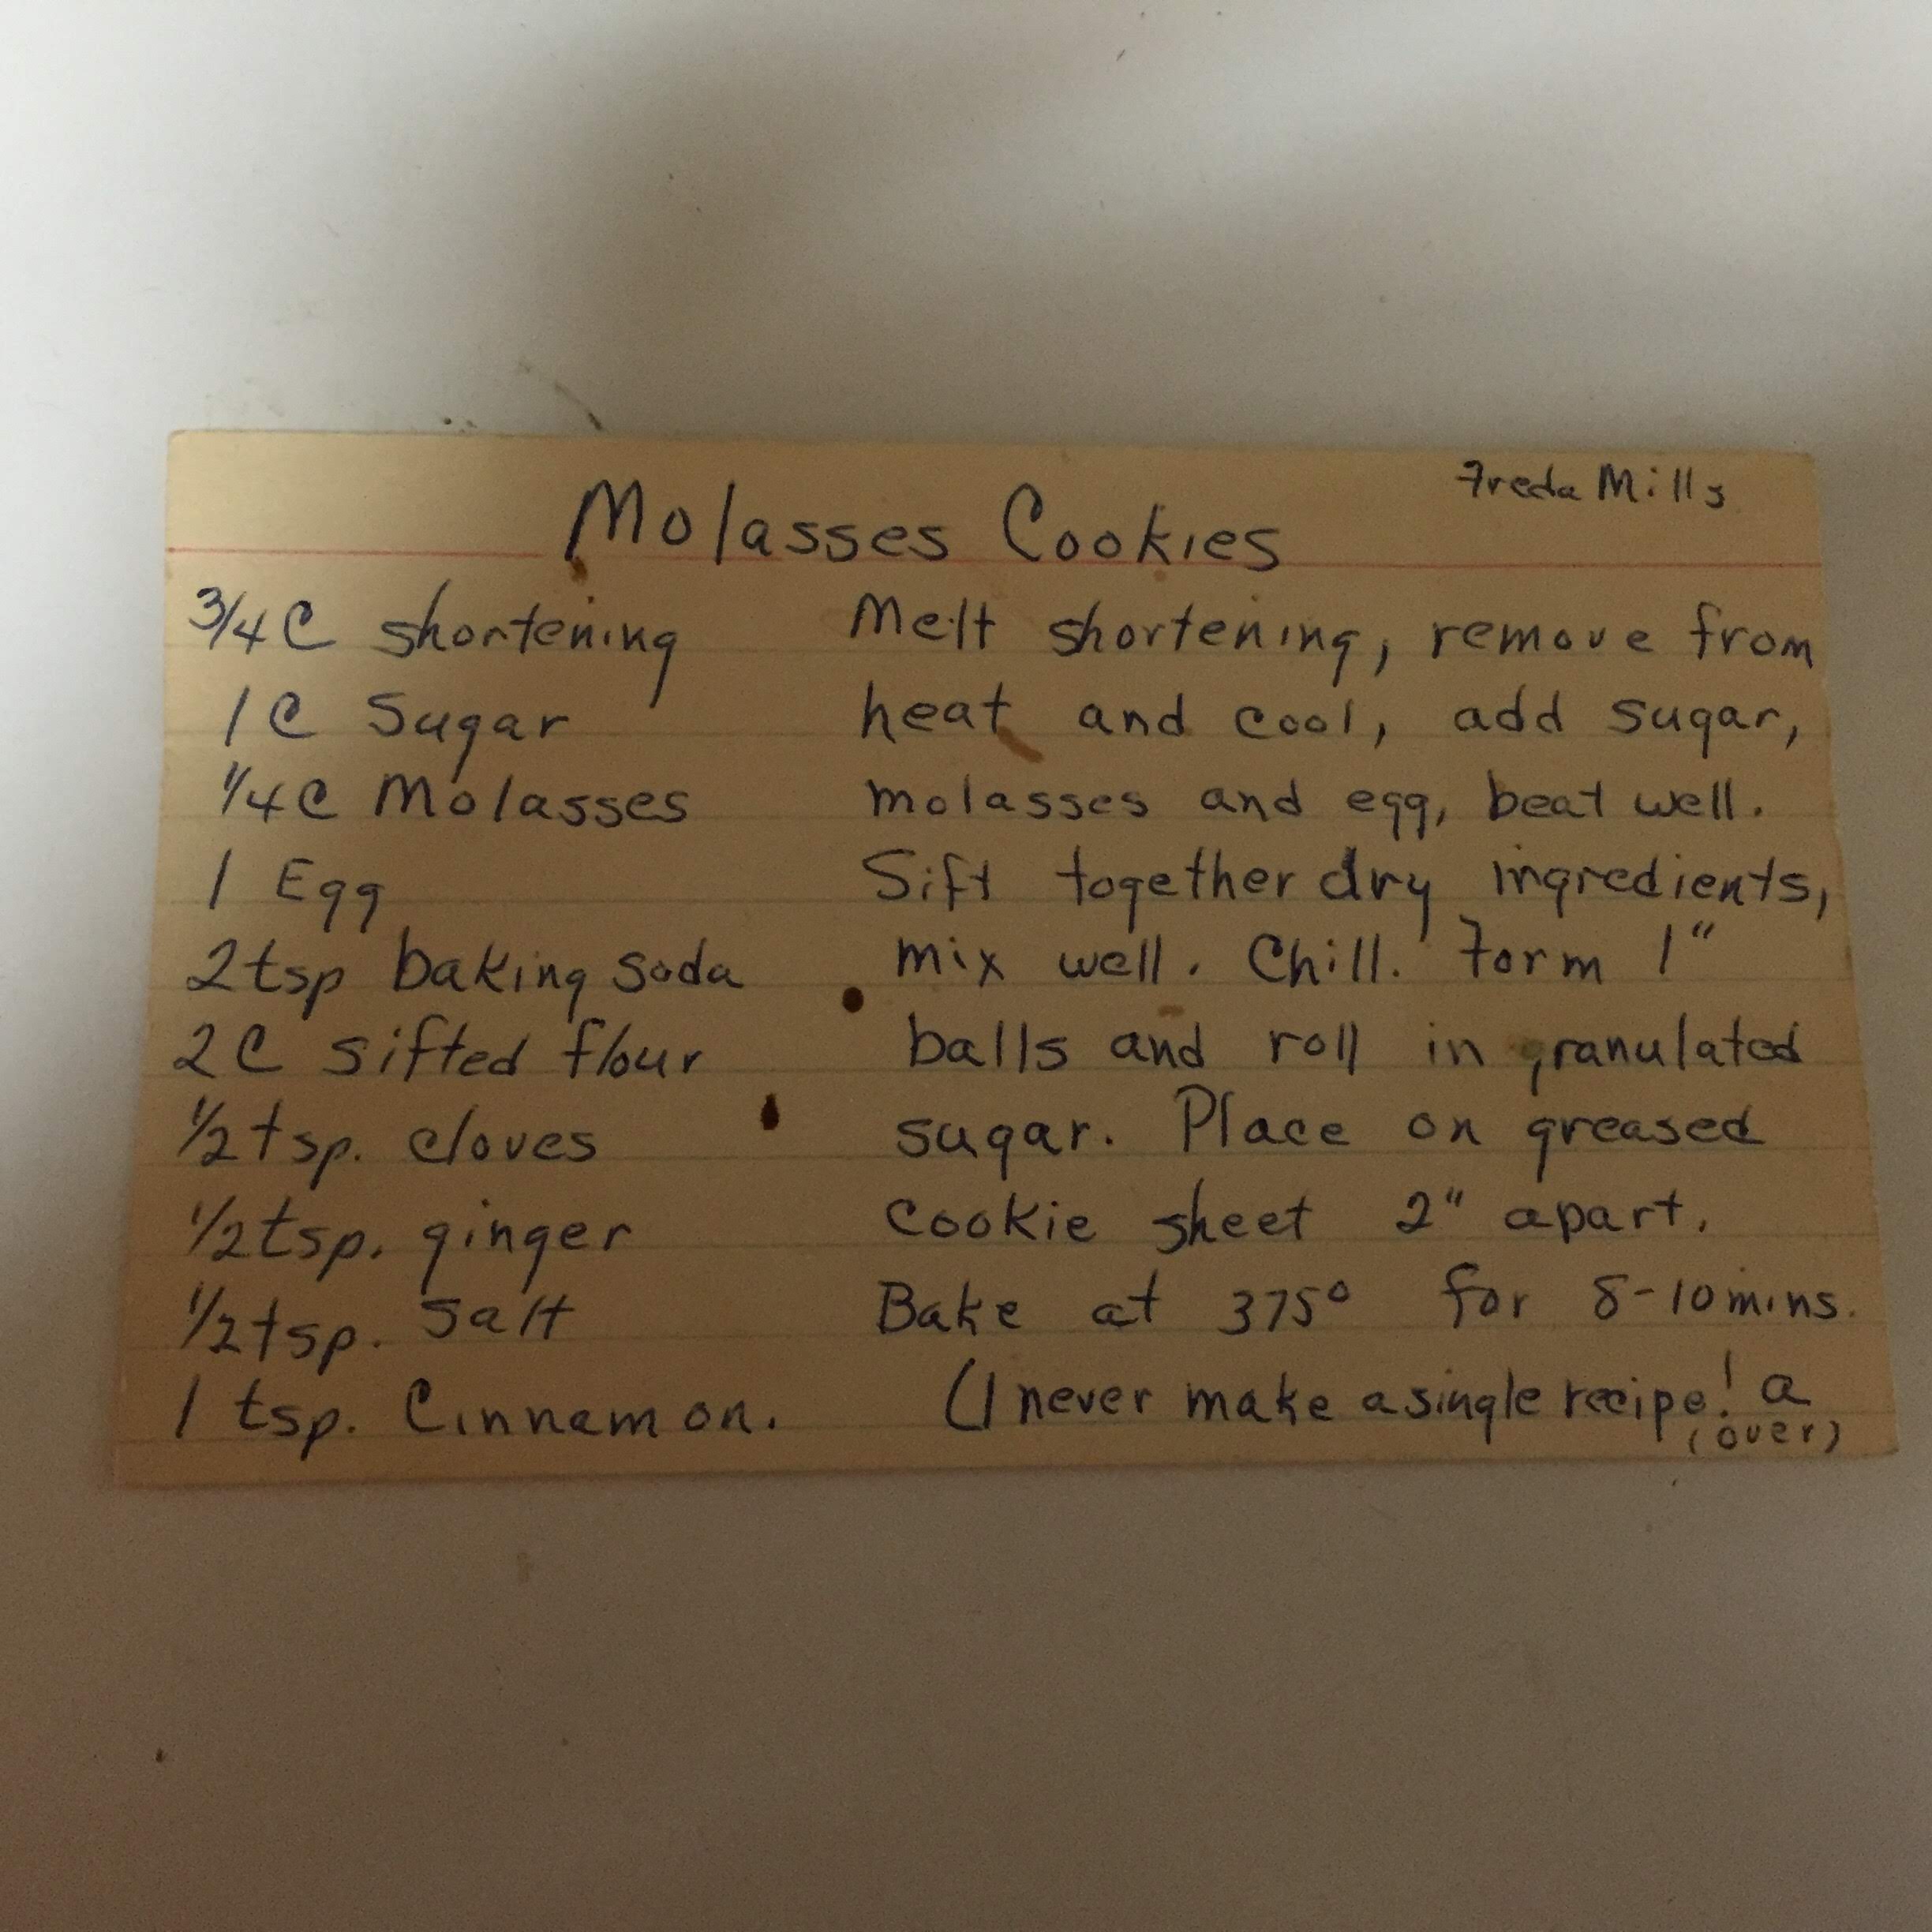 Freda Mills
Molasses Cookies
3/4 C shortening
1 C Sugar
1/4 C Molasses
1 Egg
2 tsp baking soda
2 C sifted flour
1/2 tsp. cloves
1/2 tsp. ginger
1/2 tsp. salt
1 tsp. Cinnamon.
Melt shortening, remove from
heat and cool, add sugar,
molasses and egg, beat well.
Sift together dry ingredients,
mix well. Chill. Form 1"
balls and roll in granulated
sugar. Place on greased
cookie sheet 2" apart.
Bake at 375° for 8-10 mins.
(I never make a single recipe! a
(over)